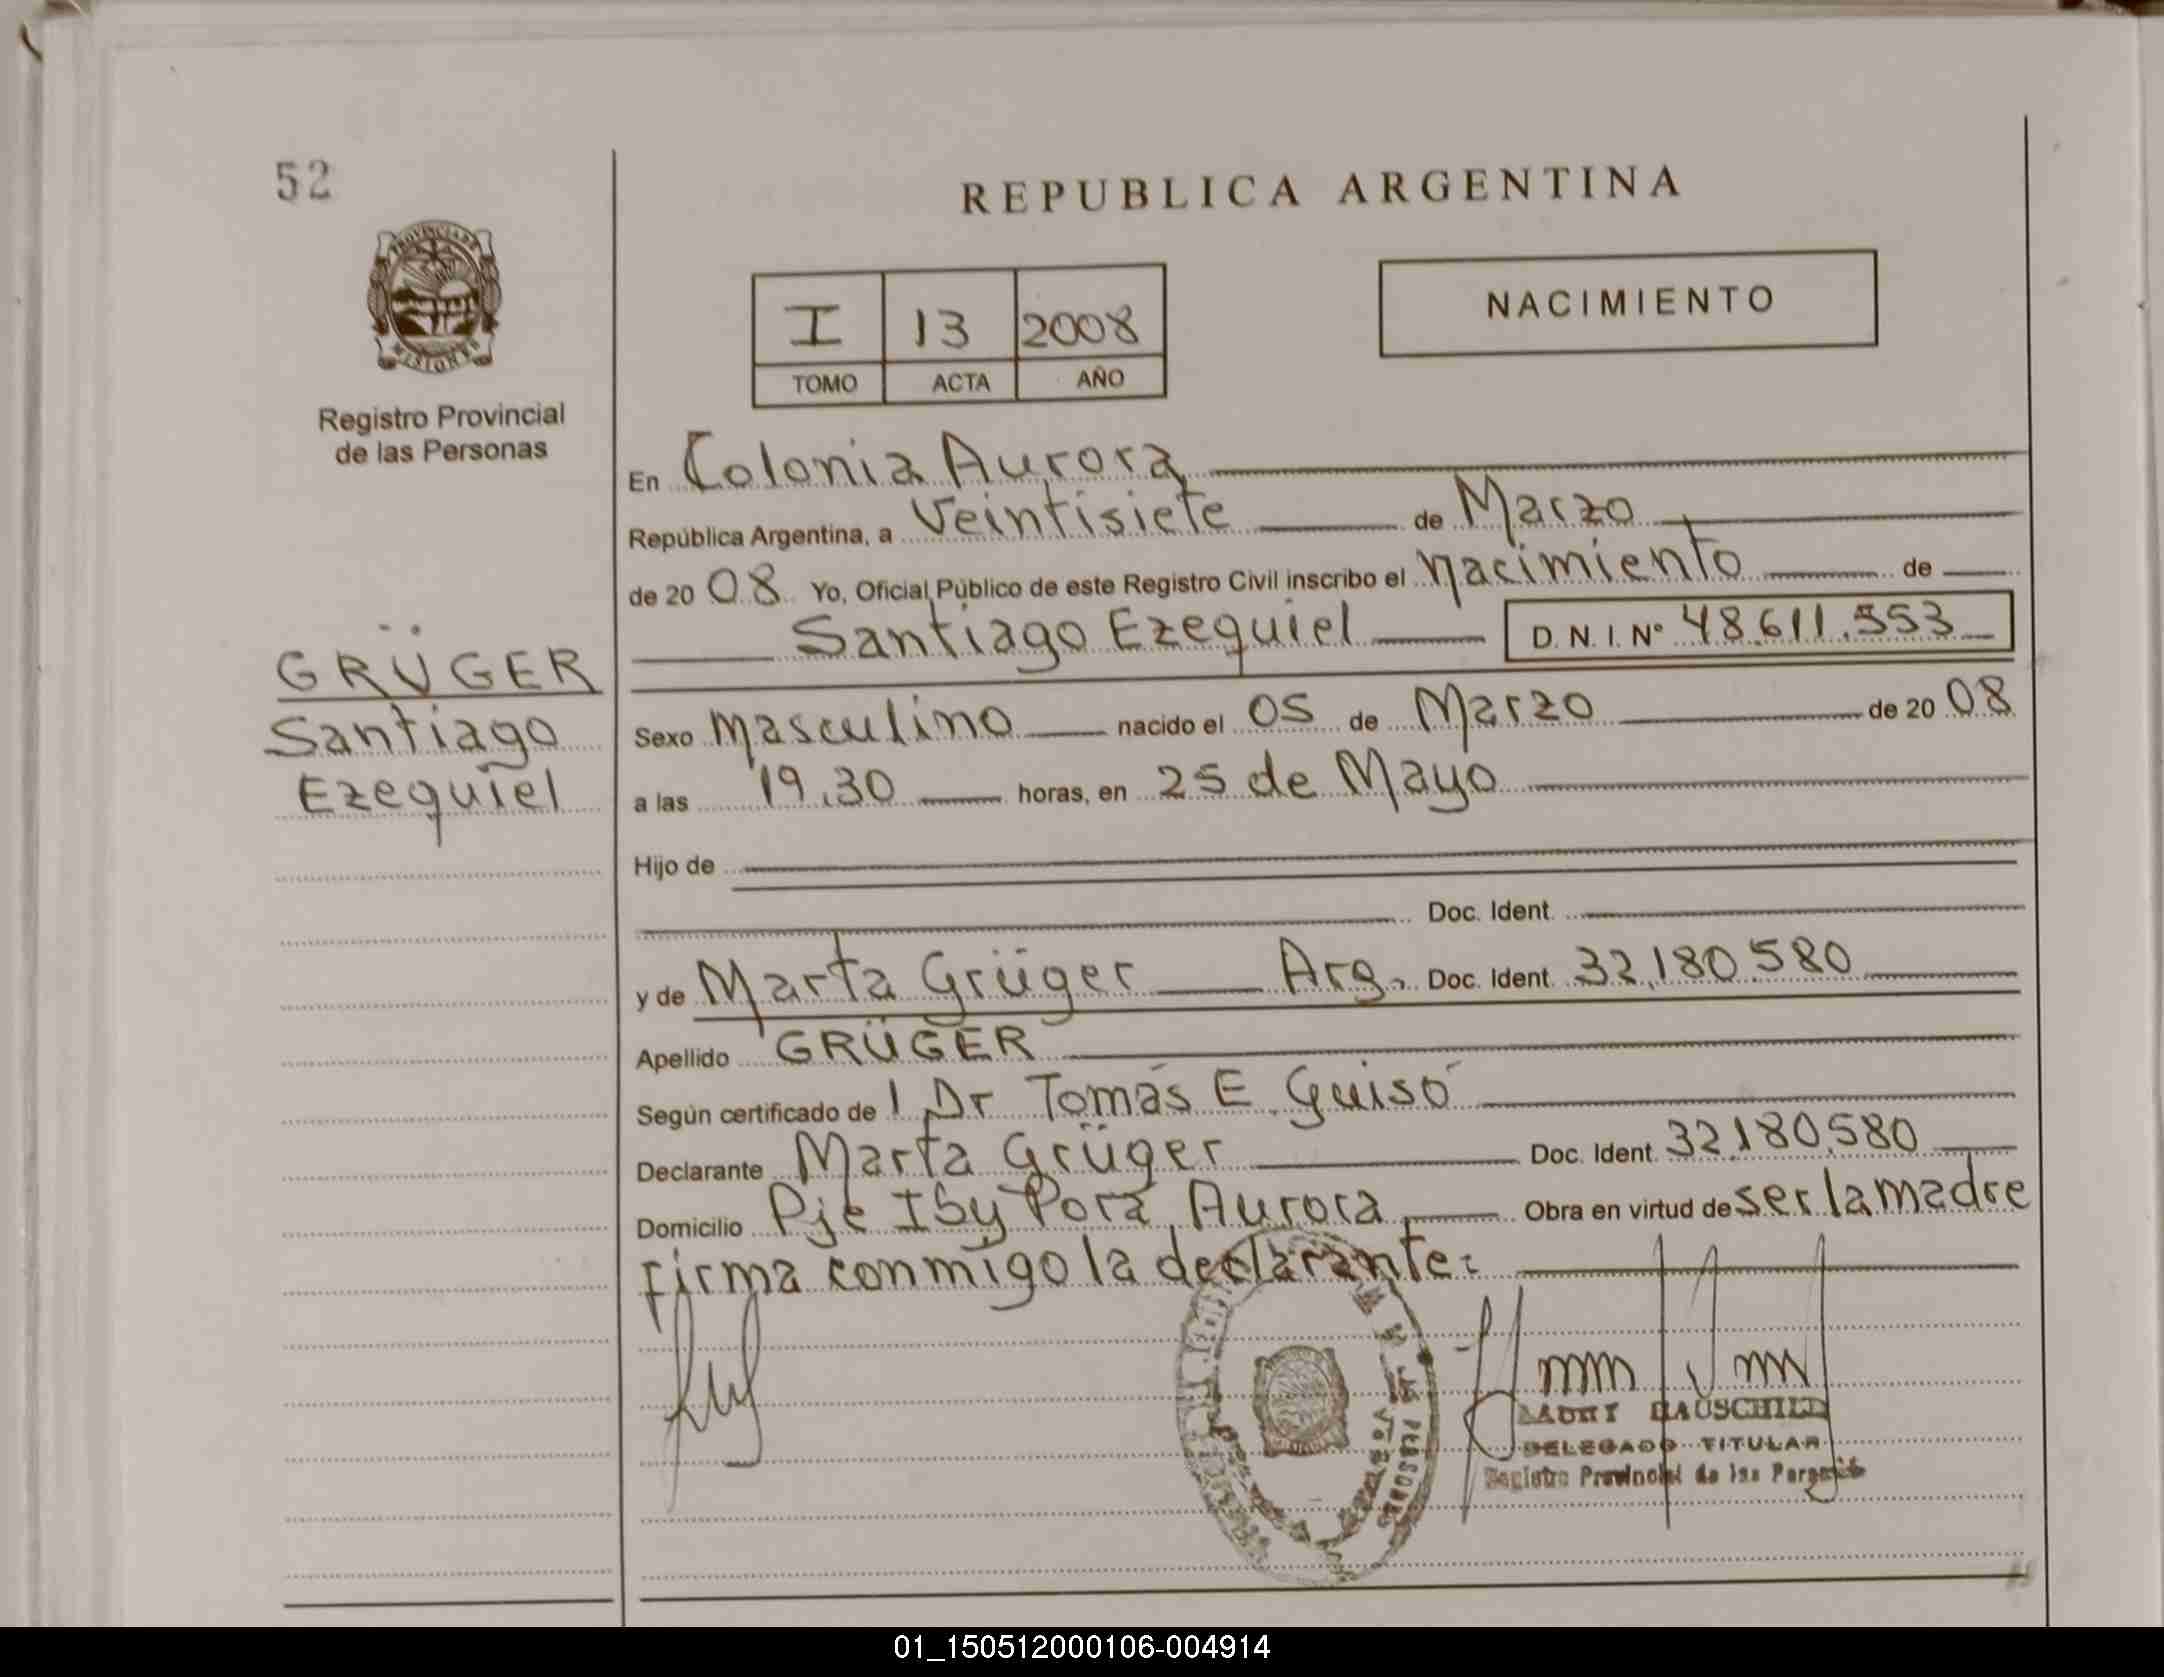 52
REPUBLICA ARGENTINA
PROVINCIA DE
MISIONES
Registro Provincial
de las Personas
I 13 2008
TOMO ACTA AÑO
NACIMIENTO
En Colonia Aurora
República Argentina, a Veintisiete de Marzo
de 20 08 Yo, Oficial Público de este Registro Civil inscribo el nacimiento de
Santiago Ezequiel D.N.I. Nº 48.611.553
GRÜGER
Santiago
Ezequiel
Sexo Masculino nacido el 05 de Marzo de 20 08
a las 19.30 horas, en 25 de Mayo
Hijo de
Doc. Ident.
y de Marta Grüger Arg. Doc. Ident. 32.180.580
Apellido GRÜGER
Según certificado de Dr Tomás E. Guisó
Declarante Marta Grüger Doc. Ident. 32.180.580
Domicilio Pje Iby Porá, Aurora Obra en virtud de ser la madre
firma conmigo la declarante:
DELEGADO TITULAR
Registro Provincial de las Personas
01_150512000106-004914